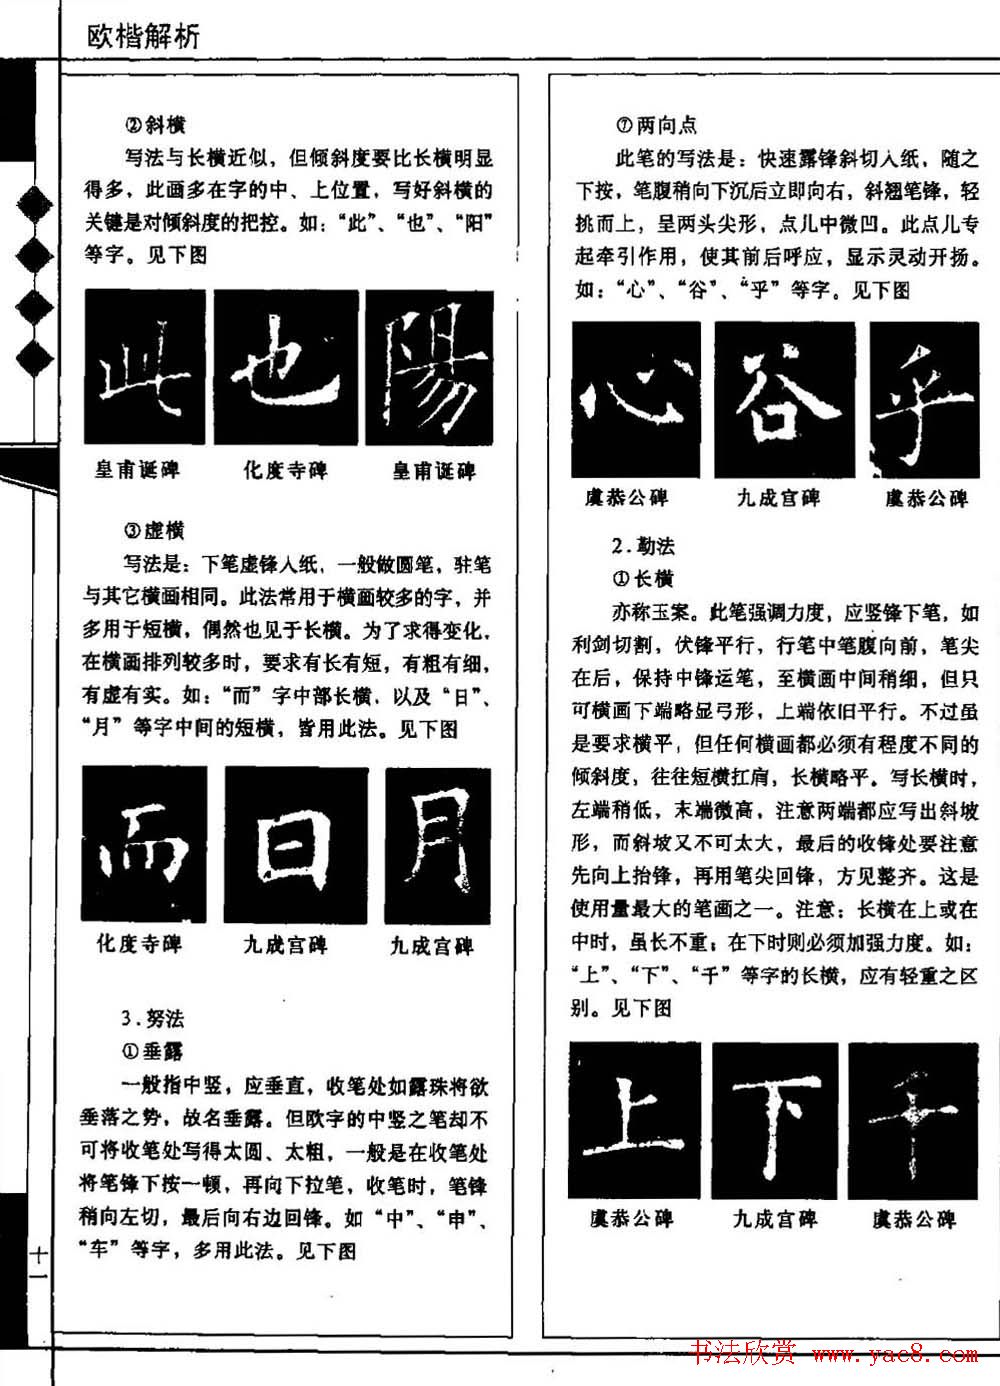 欧楷解析
⑦两向点
此笔的写法是：快速露锋斜切入纸，随之
下按，笔腹稍向下沉后立即向右，斜翘笔锋，轻
挑而上，呈两头尖形，点儿中微凹。此点儿专
起牵引作用，使其前后呼应，显示灵动开扬。
如：“心”、“谷”、“乎”等字。见下图
心 谷 乎
虞恭公碑 九成宫碑 虞恭公碑
2.勒法
①长横
亦称玉案。此笔强调力度，应竖锋下笔，如
利剑切割，伏锋平行，行笔中笔腹向前，笔尖
在后，保持中锋运笔，至横画中间稍细，但只
可横画下端略显弓形，上端依旧平行。不过虽
是要求横平，但任何横画都必须有程度不同的
倾斜度，往往短横扛肩，长横略平。写长横时，
左端稍低，末端微高，注意两端都应写出斜坡
形，而斜坡又不可太大，最后的收锋处要注意
先向上抬锋，再用笔尖回锋，方见整齐。这是
使用量最大的笔画之一。注意：长横在上或在
中时，虽长不重；在下时则必须加强力度。如：
“上”、“下”、“千”等字的长横，应有轻重之区
别。见下图
上 下 千
虞恭公碑 九成宫碑 虞恭公碑
②斜横
写法与长横近似，但倾斜度要比长横明显
得多，此画多在字的中、上位置，写好斜横的
关键是对倾斜度的把控。如：“此”、“也”、“阳”
等字。见下图
此 也 陽
皇甫诞碑 化度寺碑 皇甫诞碑
③虚横
写法是：下笔虚锋入纸，一般做圆笔，驻笔
与其它横画相同。此法常用于横画较多的字，并
多用于短横，偶然也见于长横。为了求得变化，
在横画排列较多时，要求有长有短，有粗有细，
有虚有实。如：“而”字中部长横，以及“日”、
“月”等字中间的短横，皆用此法。见下图
而 日 月
化度寺碑 九成宫碑 九成宫碑
3.努法
①垂露
一般指中竖，应垂直，收笔处如露珠将欲
垂落之势，故名垂露。但欧字的中竖之笔却不
可将收笔处写得太圆、太粗，一般是在收笔处
将笔锋下按一顿，再向下拉笔，收笔时，笔锋
稍向左切，最后向右边回锋。如“中”、“申”、
“车”等字，多用此法。见下图
十一
书法欣赏 www.yac8.com